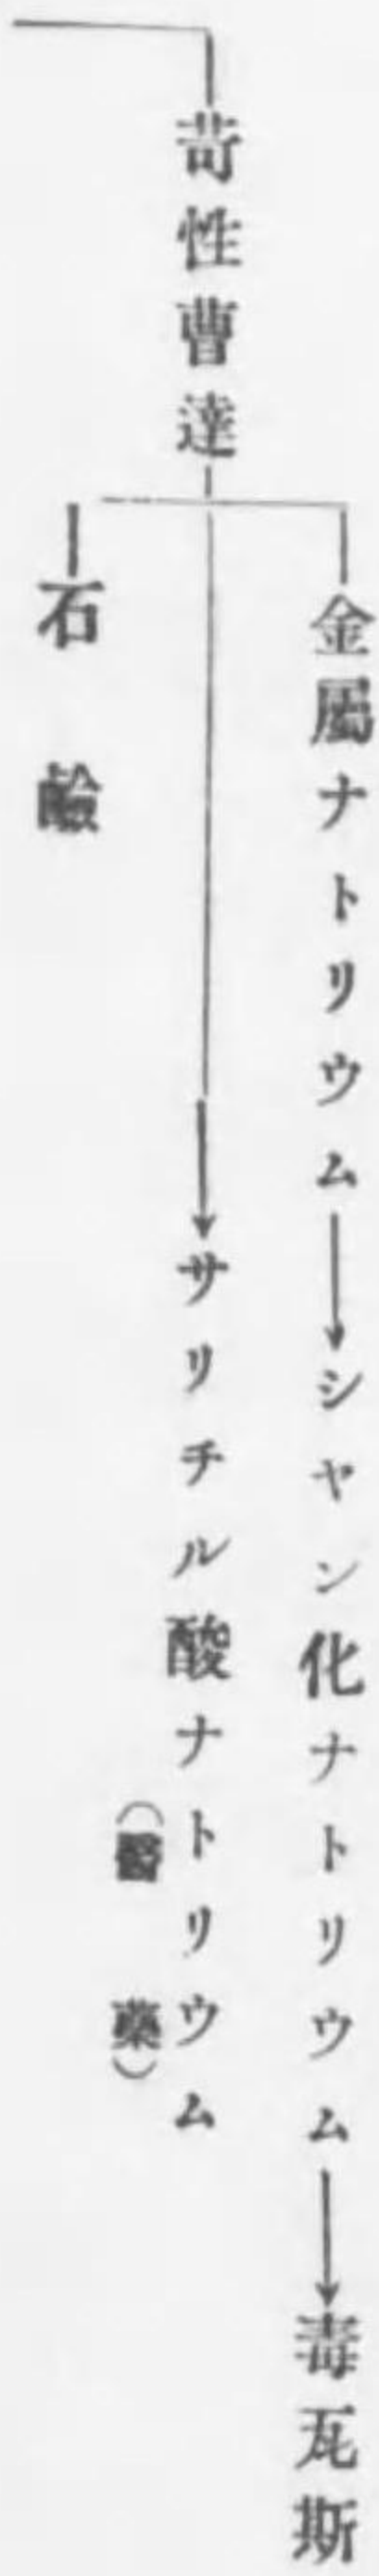 苛性曹達
金屬ナトリウム
シヤン化ナトリウム
毒瓦斯
サリチル酸ナトリウム
（醫藥）
石鹼